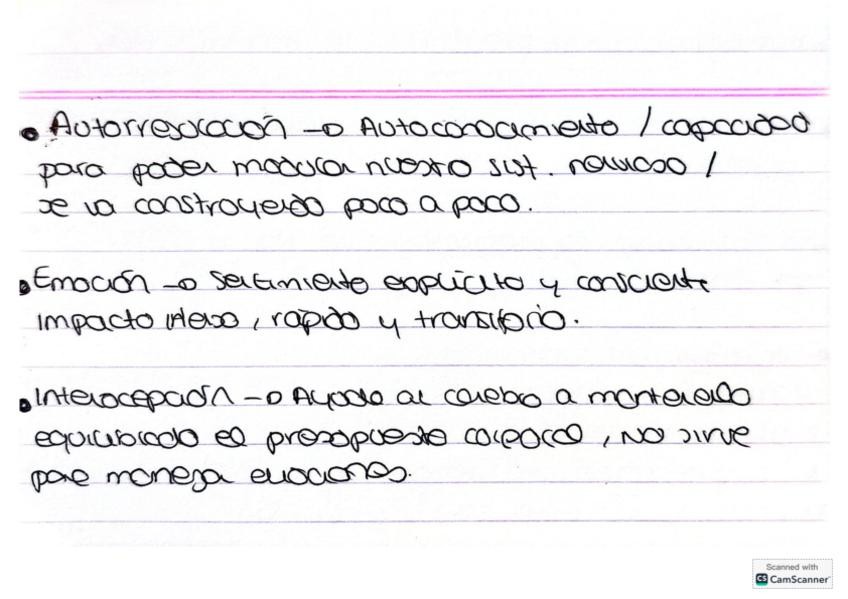 • Autorregulación → Autoconocimiento / capacidad
para poder modular nuestro sist. nervioso /
se va construyendo poco a poco.
• Emoción → Sentimiento explícito y consciente
impacto intenso, rápido y transitorio.
• Interocepción → Ayuda al cerebro a mantenerlo
equilibrado el presupuesto corporal, NO sirve
para manejar emociones.
Scanned with
CS CamScanner